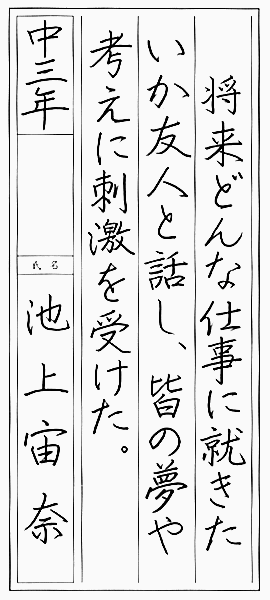 将来どんな仕事に就きた
いか友人と話し、皆の夢や
考えに刺激を受けた。
中三年
氏名
池上宙奈